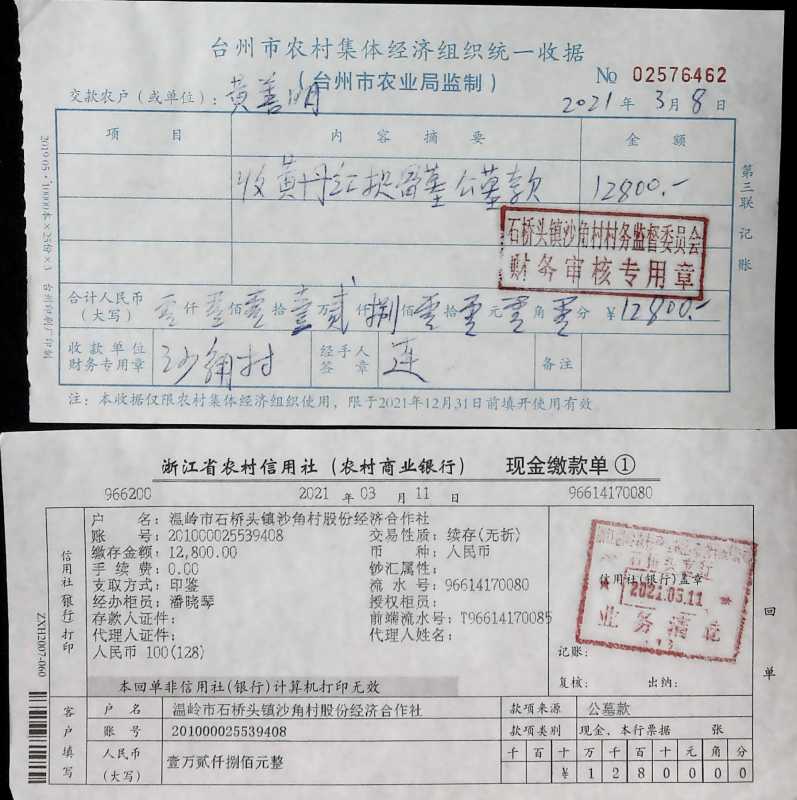 台州市农村集体经济组织统一收据
（台州市农业局监制）
№ 02576462
交款农户（或单位）：黄善明
2021年3月8日
项 目 内 容 摘 要 金 额
收黄丹红 公墓款 12800.-
石桥头镇沙角村村务监督委员会
财务审核专用章
合计人民币（大写） 零仟零佰零拾壹万贰仟捌佰零拾零元零角零分 ￥12800.-
收款单位财务专用章 沙角村 经手人签章 连 备注
注：本收据仅限农村集体经济组织使用，限于2021年12月31日前填开使用有效
第三联 记账
2019.05·10000本×25份×3 台州印刷厂印制
浙江省农村信用社（农村商业银行） 现金缴款单①
966200 2021 年 03 月 11 日 96614170080
户 名：温岭市石桥头镇沙角村股份经济合作社
账 号：201000025539408 交易性质：续存(无折)
缴存金额：12,800.00 币 种：人民币
手 续 费：0.00 钞汇属性：
支取方式：印鉴 流 水 号：96614170080
经办柜员：潘晓琴 授权柜员：
存款人证件： 前端流水号：T96614170085
代理人证件： 代理人姓名：
人民币 100(128)
本回单非信用社(银行)计算机打印无效
信用社(银行)打印
信用社(银行)盖章
业务清讫
记账：
复核： 出纳：
回单
ZXH2007-060
客户填写
户 名 温岭市石桥头镇沙角村股份经济合作社 款项来源 公墓款
账 号 201000025539408 款项类别 现金、本行票据 张
人民币（大写） 壹万贰仟捌佰元整
千 百 十 万 千 百 十 元 角 分
￥ 1 2 8 0 0 0 0